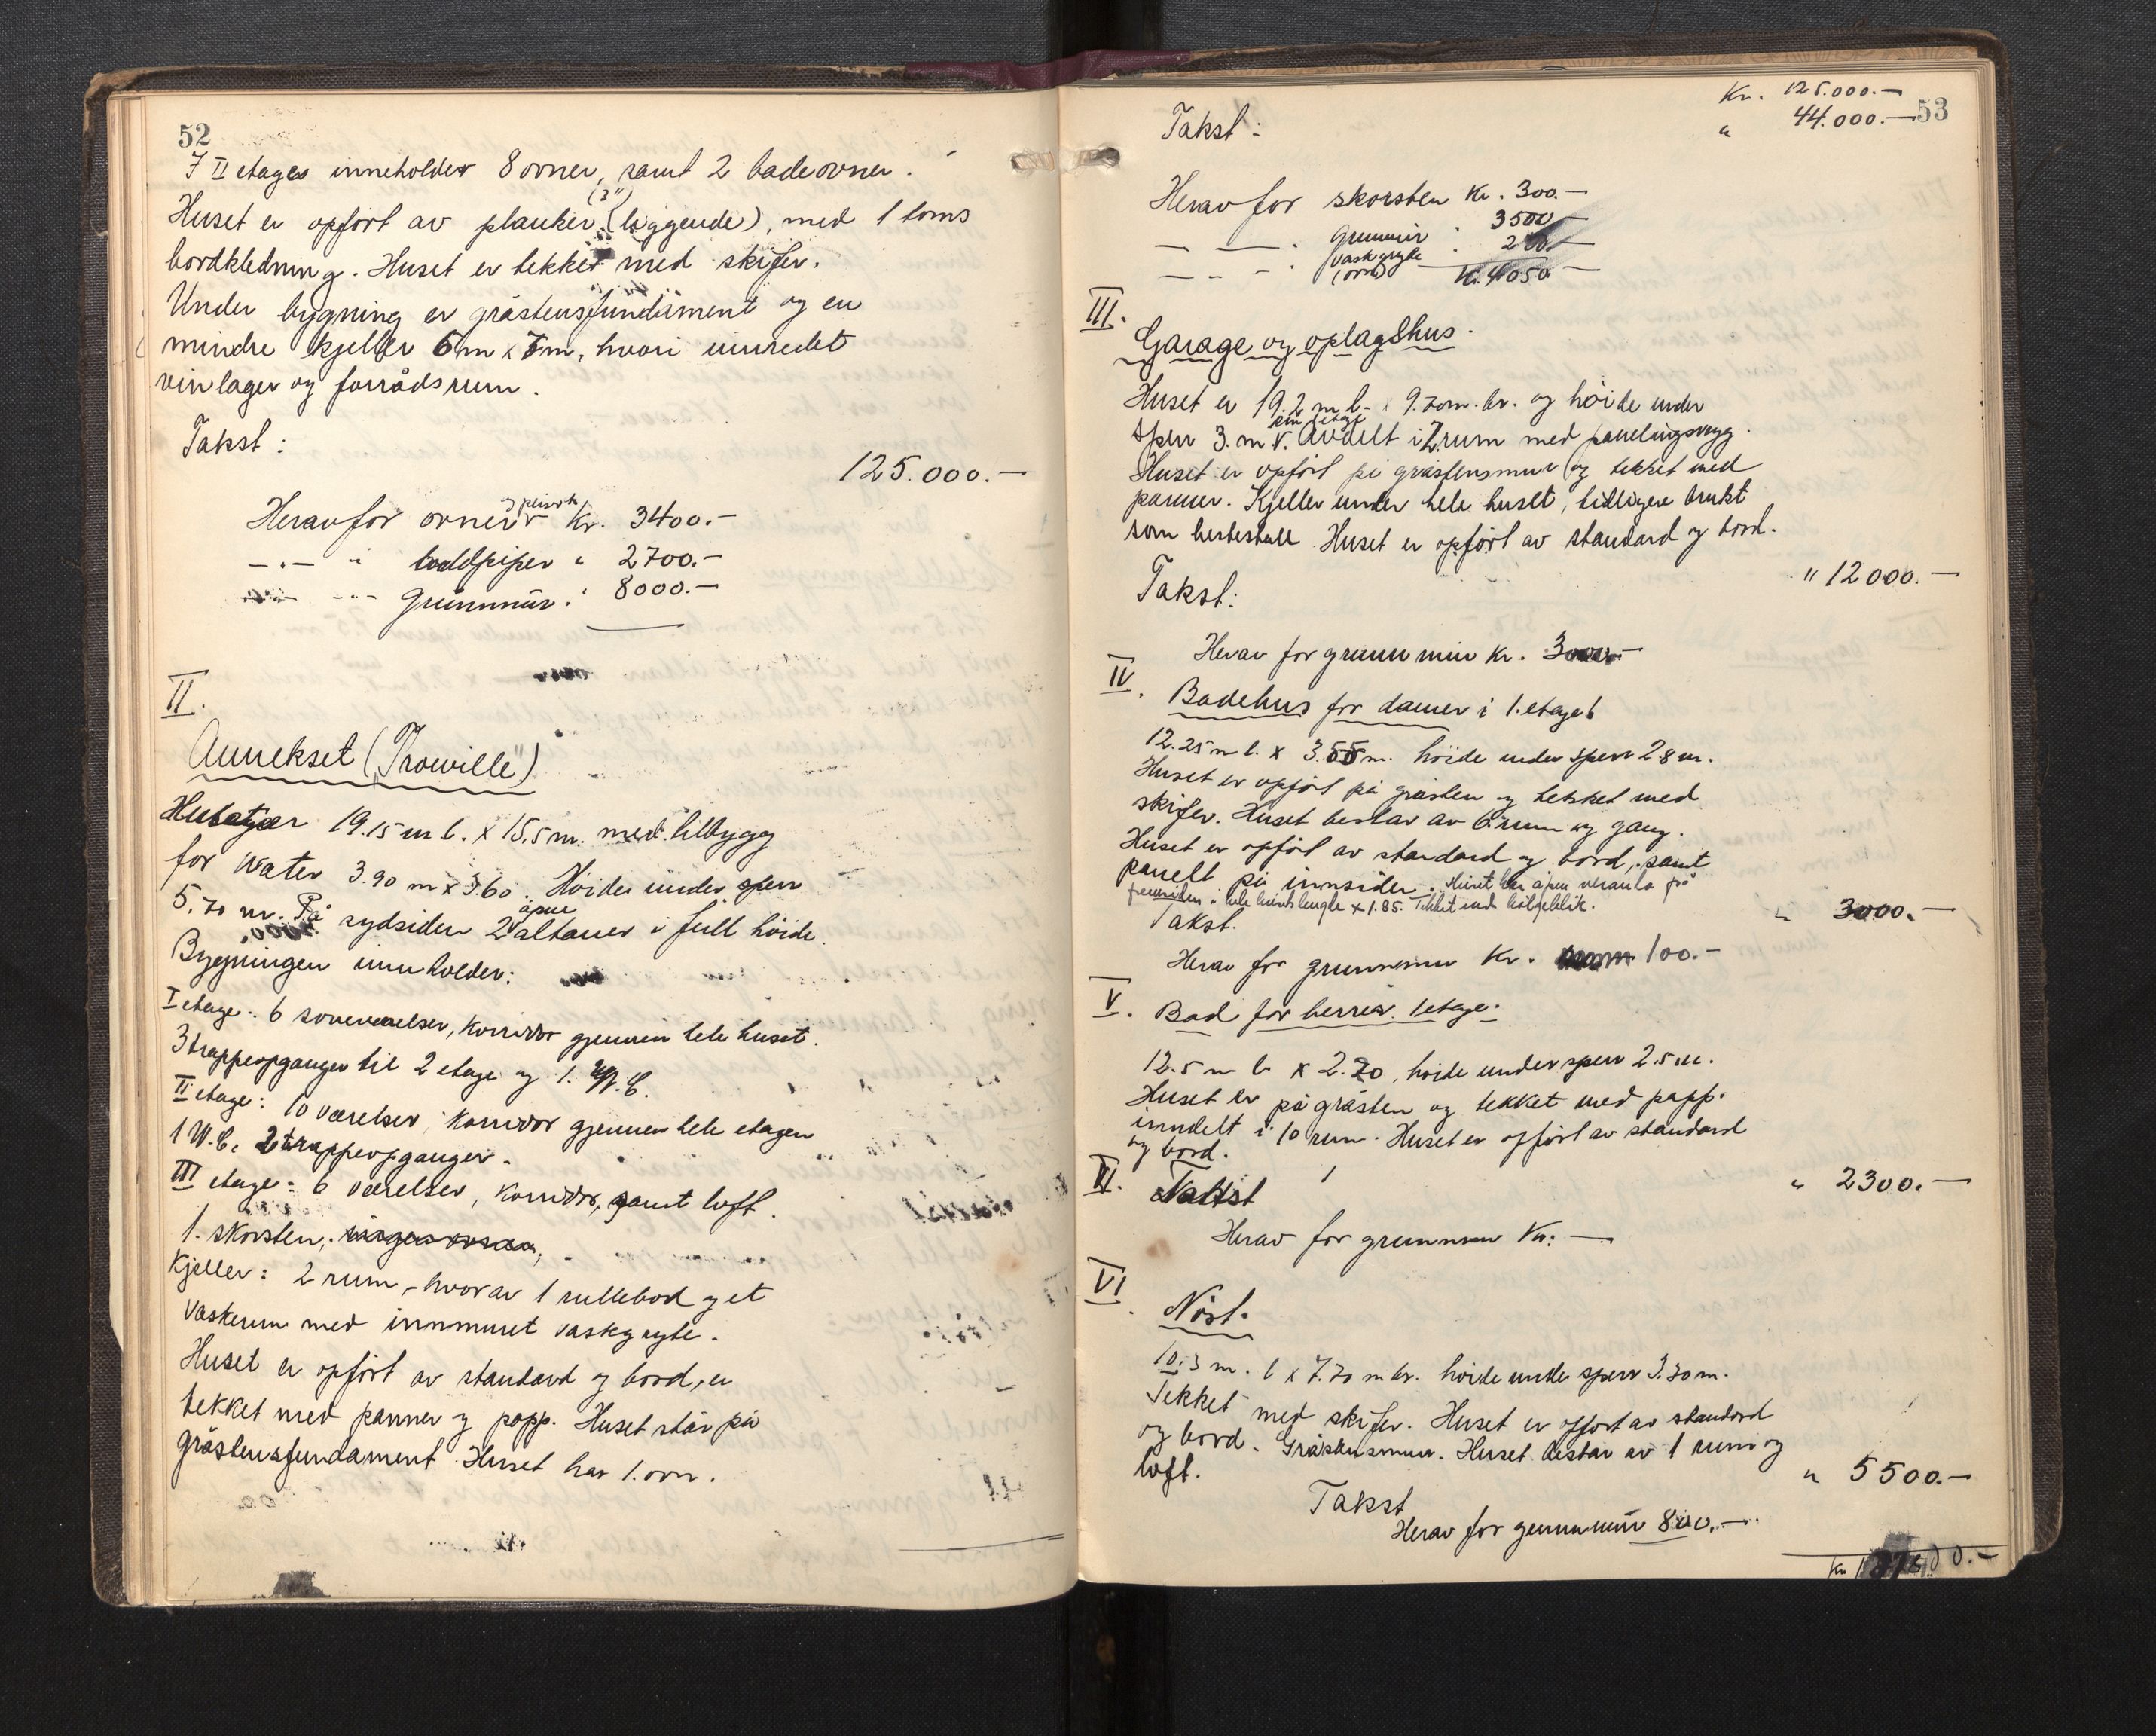 52
I II etages inneholder 8 ovner, samt 2 badeovner.
Huset er opført av planker (3") (liggende), med 1 toms
bordkledning. Huset er tekket med skifer.
Under bygning er gråstensfundament og en
mindre kjeller 6 m x 7 m, hvori innredet
vinlager og forrådsrum.
Takst:
125.000.-
Herav for ovner Kr. 3400.-
-.- " 2700.-
-.- grunnmur " 8000.-
II.
Annekset ("Trouville")
Huset er 19.15 m l. x 15.5 m. med tilbygg
for Water 3.90 m x 3.60. Høide under sperr
5.70 m. På sydsiden 2 åpne altaner i full høide.
Bygningen inneholder:
I etage: 6 soveværelser, korridor gjennem hele huset.
3 trappeopganger til 2 etage og 1. W.C.
II etage: 10 værelser, korridor gjennem hele etagen
1 W.C. 2 trappeopganger.
III etage: 6 værelser, korridor, samt loft.
1. skorsten,
Kjeller: 2 rum, - hvorav 1 rullebod og et
vaskerum med innmuret vaskgryte.
Huset er opført av standard og bord, er
tekket med panner og papp. Huset står på
gråstensfundament. Huset har 1. ovn.
53
Kr. 125.000.-
Takst: " 44.000.-
Herav for skorsten Kr. 300.-
- - " grunnmur " 3500.-
- - " vaskgryte (ovn) " 250.-
Kr. 4050.-
III.
Garage og oplagshus.
Huset er 19.2 m l. x 9.70 m. br. og høide under
sperr 3. m. én etage Avdelt i 2 rum med panelingsvegg.
Huset er opført på gråstensmur og tekket med
panner. Kjeller under hele huset, tidligere brukt
som hestestall. Huset er opført av standard og bord.
Takst: " 12000.-
Herav for grunnmur Kr. 3000.-
IV.
Badehus for damer i 1. etage
12.25 m l. x 3.55 m. høide under sperr 2.8 m.
Huset er opført på gråsten og tekket med
skifer. Huset består av 6 rum og gang.
Huset er opført av standard og bord, samt
panelt på innsiden. Huset har åpen veranda på
fremsiden i hele husets lengde x 1.85. Tekket med bølgeblik.
Takst. " 3000.-
Herav for grunnmur Kr. 100.-
V.
Bad for herrer. 1 etage.
12.5 m l. x 2.20, høide under sperr 2.5 m.
Huset er på gråsten og tekket med papp.
inndelt i 10 rum. Huset er opført av standard
og bord.
Takst " 2300.-
Herav for grunnmur Kr: -
VI.
Nøst.
10.3 m. l x 7.70 m br. høide under sperr 3.30 m.
Tekket med skifer. Huset er opført av standard
og bord. Gråstensmur. Huset består av 1 rum og
loft.
" 5500.-
Takst
Herav for grunnmur 800.-